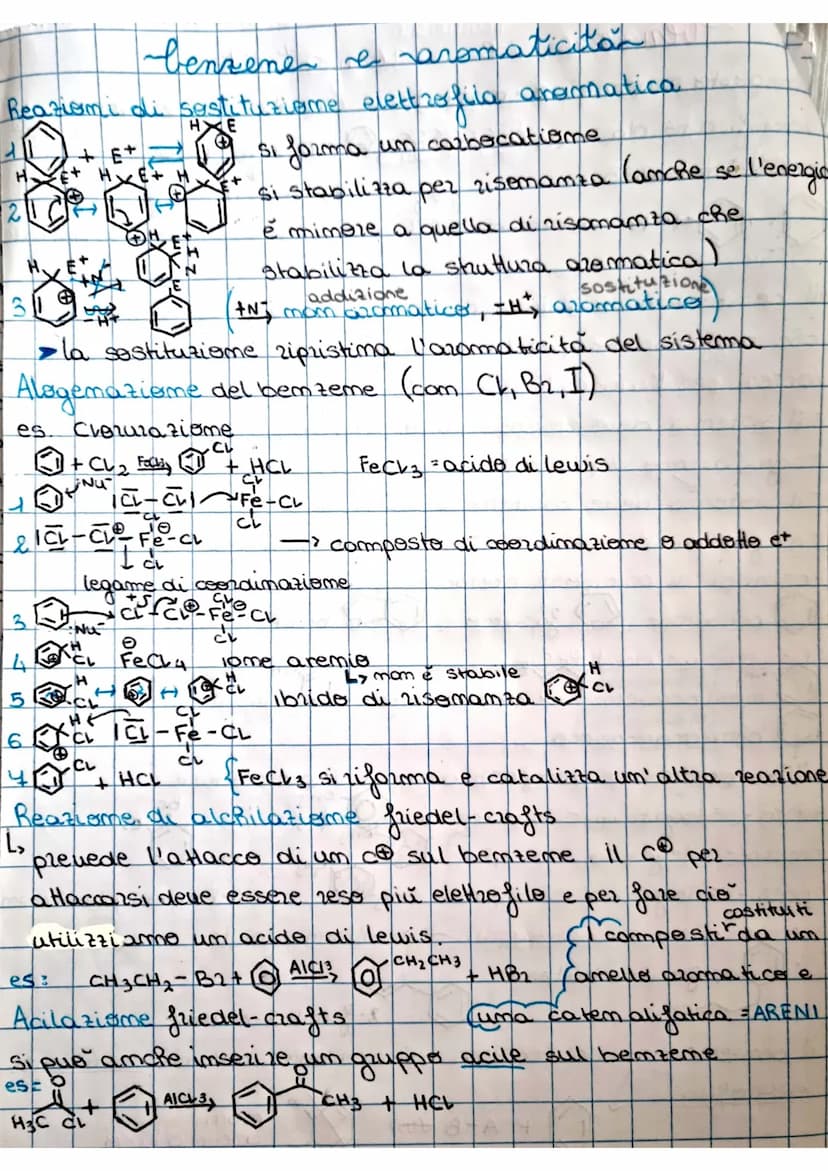 benzene e aromaticità
Reazioni di sostituzione elettrofila aromatica
1 + E+ ⇌ H E si forma un carbocatione
2 H E+ ↔ H E+ ↔ H E+ si stabilizza per risonanza (anche se l'energia
è minore a quella di risonanza che
stabilizza la struttura aromatica)
3 H E+ +N- E H N
-H+ E (+N- addizione non aromatico, -H+ sostituzione aromatico)
➤ la sostituzione ripristina l'aromaticità del sistema
Alogenazione del benzene (con Cl, Br, I)
es. Clorurazione
+ Cl2 FeCl3 → Cl + HCl FeCl3 = acido di lewis
1 :Nu- |Cl-Cl| Fe-Cl Cl Cl
2 |Cl-Cl⊕-Fe⊖-Cl Cl Cl → composto di coordinazione o addotto et
legame di coordinazione
3 :Nu- Cl δ+ -Cl⊕-Fe⊖-Cl Cl Cl
4 H Cl FeCl4 ⊖ ione arenio
↳ non è stabile
5 H Cl ↔ ↔ H Cl ibrido di risonanza H Cl
6 H Cl |Cl-Fe-Cl Cl Cl
7 Cl + HCl {FeCl3 si riforma e catalizza un'altra reazione
Reazione di alchilazione friedel-crafts
↳ prevede l'attacco di un C⊕ sul benzene. il C⊕ per
attaccarsi deve essere reso più elettrofilo e per fare ciò
utilizziamo un acido di lewis.
{I composti costituiti da un
es: CH3CH2-Br + AlCl3 → CH2CH3 + HBr
anello aromatico e
Acilazione friedel-crafts
(una caten alifatica = ARENI
si può anche inserire un gruppo acile sul benzene
es= O H3C Cl + AlCl3 → O CH3 + HCl